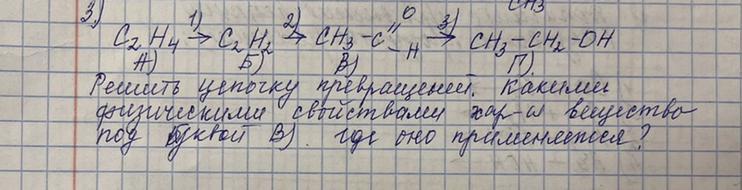 CH3
3) C2H4 1)→ C2H2 2)→ CH3-C=O-H 3)→ CH3-CH2-OH
А) Б) В) Г)
Решить цепочку превращений. Какими
физическими свойствами хар-я вещество
под буквой В). где оно применяется?